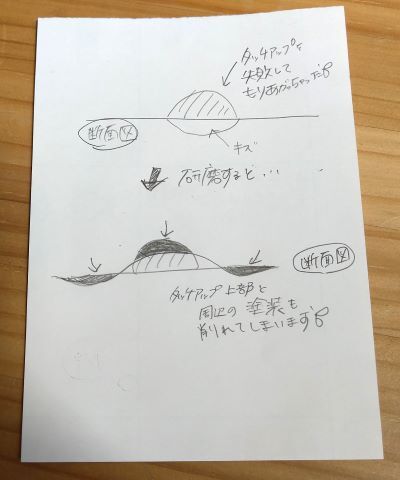 タッチアップを
失敗して
もりあがっちゃった
断面図
キズ
研磨すると...
断面図
タッチアップ上部と
周辺の塗装も
削れてしまいます